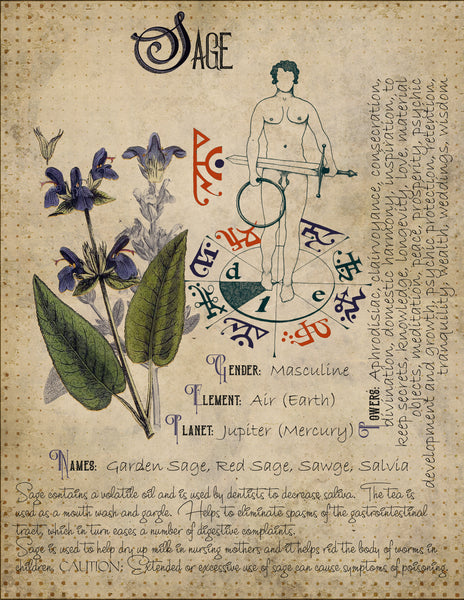 SAGE
d
1
e
GENDER: Masculine
ELEMENT: Air (Earth)
PLANET: Jupiter (Mercury)
POWERS: Aphrodisiac, clairvoyance, consecration,
divination, domestic harmony, inspiration, to
keep secrets, knowledge, longevity, love, material
objects, meditation, peace, prosperity, psychic
development and growth, psychic protection, retention,
tranquility, wealth, weddings, wisdom
NAMES: Garden Sage, Red Sage, Sawge, Salvia
Sage contains a volatile oil and is used by dentists to decrease saliva. The tea is
used as a mouth wash and gargle. Helps to eliminate spasms of the gastrointestinal
tract, which in turn eases a number of digestive complaints.
Sage is used to help dry up milk in nursing mothers and it helps rid the body of worms in
children. CAUTION: Extended or excessive use of sage can cause symptoms of poisoning.